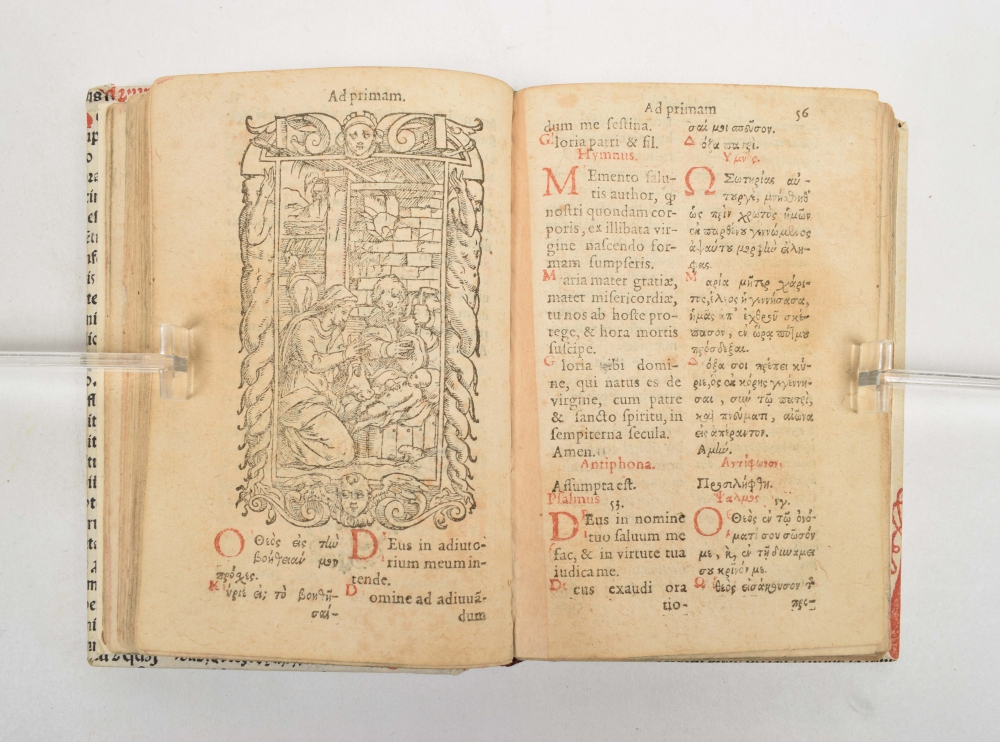 Ad primam.
Ο Θεὸς εἰς τὴν
βοήθειάν μου
πρόσχες.
Κύριε εἰς τὸ βοηθῆ-
σαί-
DEus in adiuto-
rium meum in-
tende.
Domine ad adiuuã-
dum
Ad primam
56
dum me festina.
Gloria patri & fil.
Hymnus.
MEmento salu-
tis author, ꝙ
nostri quondam cor-
poris, ex illibata vir-
gine nascendo for-
mam sumpseris.
Maria mater gratiæ,
mater misericordiæ,
tu nos ab hoste pro-
tege, & hora mortis
suscipe.
Gloria tibi domi-
ne, qui natus es de
virgine, cum patre
& sancto spiritu, in
sempiterna secula.
Amen.
Antiphona.
Assumpta est.
Psalmus 53.
DEus in nomine
tuo saluum me
fac, & in virtute tua
iudica me.
Deus exaudi ora
tio-
σαί μοι σπεῦσον.
Δόξα πατρί.
Υμνος.
Ω Σωτηρίας αὐ-
τουργὲ, μνήσθηθ'
ὡς πρὶν χρωτὸς ἡμῶν
ἐκ παρθένου γεννώμενος
ἀψαύτου μορφὴν εἴλη-
φας.
Μαρία μῆτερ χάρι-
τος, ἔλεος ἡ γεννήσασα,
ἡμᾶς ἀπ' ἐχθροῦ σκέ-
πασον, ἐν ὥρᾳ πότμου
πρόσδεξαι.
Δόξα σοι πρέπει κύ-
ριε, ὃς ἐκ κόρης γεγέννη-
σαι, σὺν τῷ πατρὶ,
καὶ πνεύματι, αἰῶνα
εἰς ἀπέραντον.
Αμήν.
Αντίφωνον.
Προσελήφθη.
Ψαλμὸς νγ.
Ο Θεὸς ἐν τῷ ὀνό-
ματί σου σῶσόν
με, κ, ἐν τῇ δυνάμει
σου κρῖνόν με.
Ο θεὸς εἰσάκουσον τ
προσ-